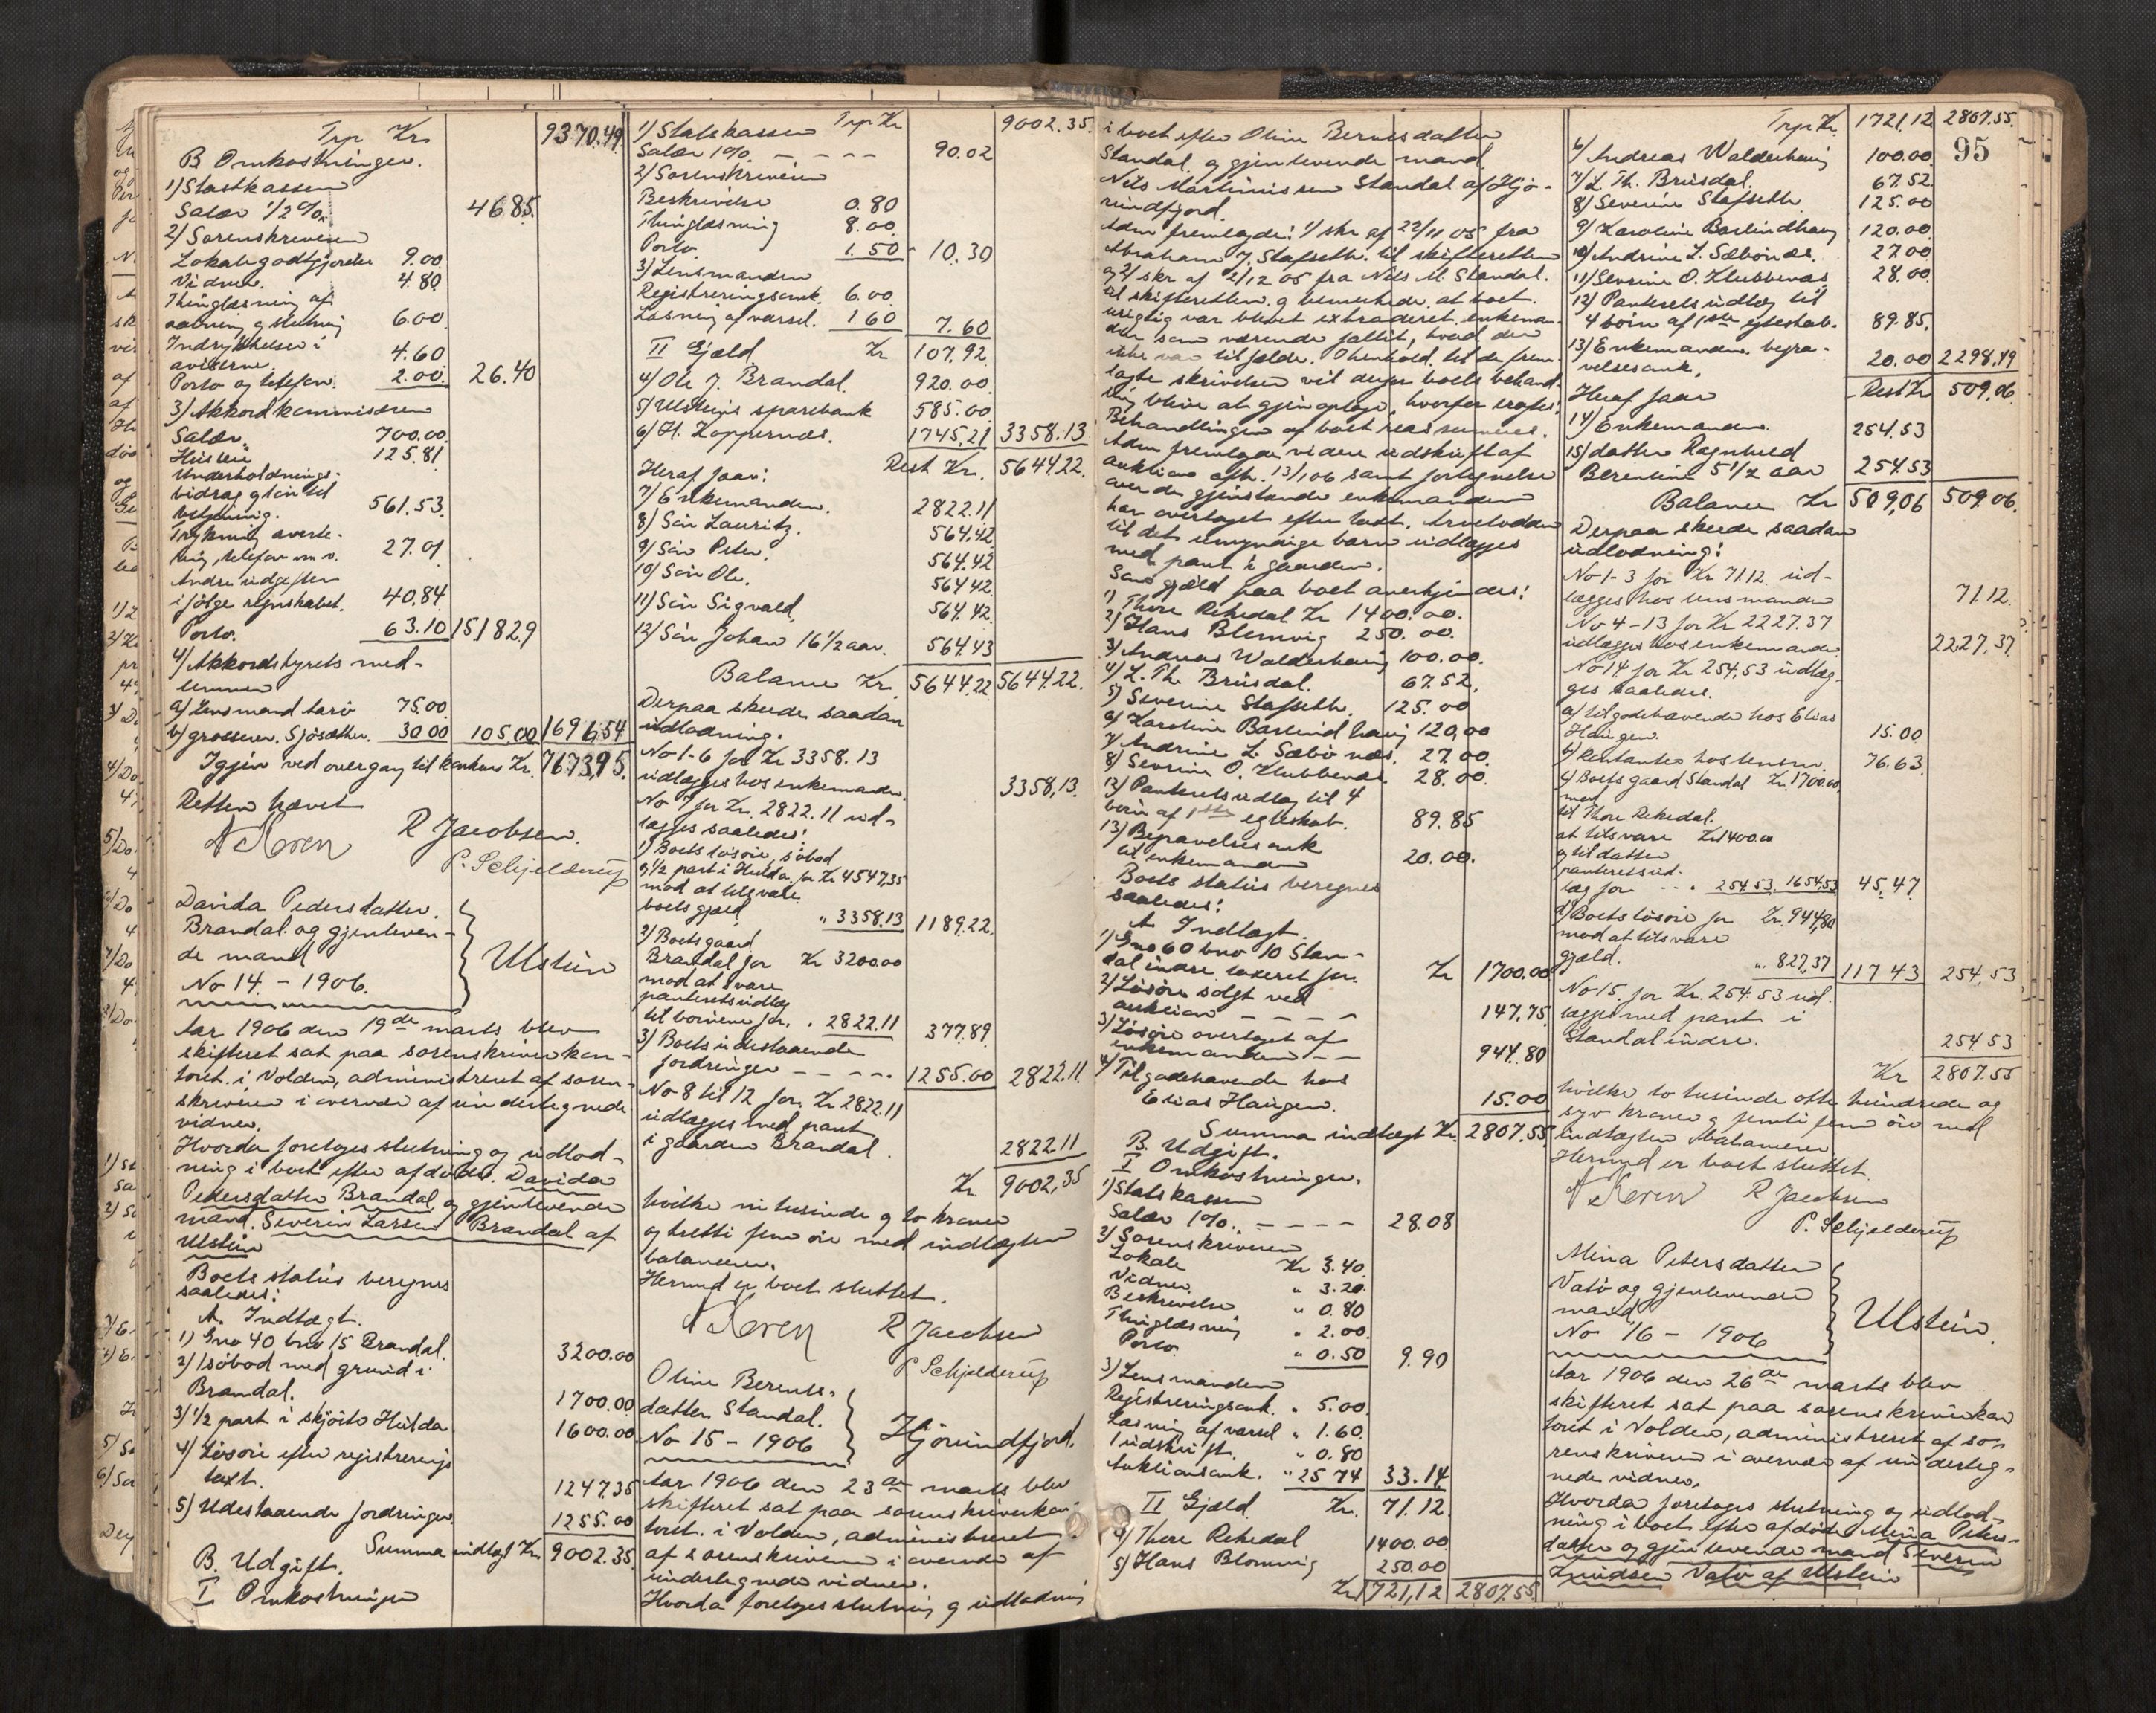 Trp Kr 9370.49
B Omkostninger.
1) Statskassen
Salær 1/2 %. 46.85.
2) Sorenskriveren
Lokalegodtgjørelse 9.00
Vidner. 4.80
Thinglæsning af
aabning og slutning 6.00
Indrykkelser i
aviserne. 4.60
Porto og telefon. 2.00. 26.40
3) Akkordkommisæren
Salær. 700.00.
Husleie 125.81
Underholdnings-
bidrag og løn til
betjening. 561.53.
Trykning averte-
ring, telefon m.v. 27.01
Andre udgifter
i følge regnskabet. 40.84
Porto. 63.10 1518.29
4) Akkordstyrets med-
lemmer
a) Lensmand 75.00.
b) grosserer. Sjösæther. 30 00 105.00 1696.54
Igjen ved overgang til konkurs Kr. 7673.95.
Retten hævet
R Jacobsen.
P. Schjelderup
Davida Pedersdatter.
Brandal og gjenleven-
de mand
No 14. - 1906.
Ulstein
Aar 1906 den 19de marts blev
skifteret sat paa sorenskriverkon-
toret i Volden, administreret af soren-
skriveren i overvær af undertegnede
vidner.
Hvorda foretoges slutning og udlod-
ning i boet efter afdøde. Davida
Pedersdatter Brandal og gjenlevende
mand. Severin Larsen Brandal af
Ulstein
Boets status beregnes
saaledes:
A. Indtægt.
1) Gno 40 bno 15 Brandal. 3200.00
2) 1 söbod med grund i
Brandal. 1700.00
3) 1/2 part i skjöite Hulda. 1600.00
4) Lösöre efter registrerings
taxt. 1247.35
5) Udestaaende fordringer. 1255.00
Summa indtægt Kr. 9002.35.
B. Udgift.
I Omkostninger
Trp Kr 9002.35.
1) Statskassen
Salær 1%. - - - - 90.02
2) Sorenskriveren
Beskrivelse 0.80
Thinglæsning 8.00.
Porto. 1.50 10.30
3) Lensmanden
Registreringsomk. 6.00.
Læsning af varsel. 1.60 7.60
II Gjæld Kr 107.92
4) Ole J. Brandal. 920.00.
5) Ulsteins sparebank 585.00.
6) H. Koppernæs. 1745.21 3358.13
Rest Kr. 5644.22.
Heraf faar:
7) Enkemanden. 2822.11
8) Sön Lauritz. 564.42
9) Sön Peter. 564.42
10) Sön Ole. 564 42
11) Sön Sigvald 564.42.
12) Sön Johan 16 1/2 aar. 564.43
Balance Kr. 5644.22 5644.22.
Derpaa skeede saadan
udlodning.
No 1-6 for Kr 3358.13
udlægges hos enkemanden. 3358,13.
No 7 for Kr. 2822.11 ud-
lægges saaledes:
1) Boets lösöre, söbod
og 1/2 part i Hulda. for Kr 4547,35
mod at tilsvare
boets gjæld " 3358.13 1189.22.
2) Boets gaard
Brandal for Kr 3200.00
mod at svare
panteretsudlæg
til børnene for. . 2822.11 377.89.
3) Boets udestaaende
fordringer - - - - . 1255.00 2822.11.
No 8 til 12 for Kr 2822.11
udlægges med pant
i gaarden Brandal. 2822.11
Kr 9002,35
hvilke ni tusinde og to kroner
og tretti fem øre med indtægten
balancerer.
Hermed er boet sluttet.
R Jacobsen
P. Schjelderup
Oline Berents-
datter Standal.
No 15 - 1906
Hjörundfjord.
Aar 1906 den 23de marts blev
skifteret sat paa sorenskriverkon-
toret i Volden, administreret
af sorenskriveren i overvær af
undertegnede vidner.
Hvorda foretoges slutning og udlodning
i boet efter Oline Berntsdatter
Standal og gjenlevende mand
Nils Martinussen Standal af Hjö-
rundfjord.
Adm fremlagde: 1) skr af 22/11 05 fra
Abraham J. Stafseth. til skifteretten
og 2) skr af 2/12 05 fra Nils M. Standal.
til skifteretten og bemerkede at boet
urigtig var blevet extraderet enkeman-
den som værende fallit, hvad der
ikke var tilfælde. I henhold til de frem-
lagte skrivelser vil derfor boets behand-
ling blive at gjenoptage, hvorfor
Behandlingen af boet reassumeres.
Adm fremlagde videre udskrift af
auktion afh. 13/1 06 samt fortegnelse
over de gjenstande enkemanden
har overtaget efter taxt. Arvelodden
til det umyndige barn udlægges
med pant i gaarden.
Som gjæld paa boet anerkjendes:
1) Thore Rekedal Kr 1400.00.
2) Hans Blomvig 250.00.
3) Andreas Walderhaug 100.00.
4) L. Th. Brusdal. 67.52.
5) Severine Stafseth. 125.00
6) Karoline Barlindhaug 120,00
7) Andrine L. Sæbönæs. 27.00.
8) Severine O. Klubbenæs. 28.00.
12) Panteretsudlæg til 4
börn af 1ste egteskab. 89.85
13) Begravelsesomk
til enkemanden 20.00.
Boets status beregnes
saaledes:
A Indtægt.
1) Gno 60 bno 10 Stan-
dal indre taxeret for. Kr 1700.00
2) Lösöre solgt ved
auktion - - - - 147.75.
3) Lösöre overtaget af
enkemanden - - 944.80
4) Tilgodehavende hos
Elias Haugen. 15.00
Summa indtægt Kr. 2807.55
B. Udgift.
I Omkostninger.
1) Statskassen
Salær 1%. - - - - 28.08
2) Sorenskriveren
Lokale Kr 3.40
Vidner. " 3.20
Beskrivelse " 0.80
Thinglæsning " 2.00.
Porto. " 0.50 9.90
3) Lensmanden
Registreringsomk. " 5.00.
Læsning af varsel " 1.60.
1 udskrift. " 0.80
Auktionsomk. " 25 74 33.14
II Gjæld Kr. 71.12.
4) Thore Rekedal 1400.00.
5) Hans Blomvig 250.00
Kr 1721,12 2807.55
Trp Kr. 1721,12 2807.55.
95
6) Andreas Walderhaug 100.00
7) L. Th. Brusdal. 67.52.
8) Severine Stafseth 125.00
9) Karoline Barlindhaug 120.00
10) Andrine L. Sæbönæs. 27.00
11) Severine O. Klubbenæs 28.00.
12) Panteretsudlæg til
4 börn af 1ste egteskab. 89.85.
13) Enkemanden begra-
velsesomk. 20.00 2298.49
Rest Kr 509.06
Heraf faar
14) Enkemanden. 254.53
15) datter Ragnhild
Berentine 5 1/2 aar 254.53
Balance Kr 509,06 509.06.
Derpaa skeede saadan
udlodning:
No 1-3 for Kr 71.12 ud-
lægges hos lensmanden 71.12.
No 4 - 13 for Kr 2227.37
udlægges hos enkemanden 2227,37
No 14 for Kr 254.53 udlæg-
ges saaledes.
a) tilgodehavende hos Elias
Haugen. 15.00
b) Kontanter hos lensm. 76.63
c) Boets gaard Standal Kr. 1700.00
mod
til Thore Rekedal.
at tilsvare Kr 1400.00
og til datter
panteretsud-
læg for - - . 254.53. 1654.53 45.47
d) Boets lösöre for Kr. 944,80
mod at tilsvare
gjæld. " 827,37 117 43 254,53
No 15. for Kr. 254.53 ud-
lægges med pant i
Standal indre. 254 53
Kr 2807.55
hvilke to tusinde otte hundrede og
syv kroner og femti fem øre med
indtægten balancerer
Hermed er boet sluttet.
R Jacobsen
P. Schjelderup
Mina Petersdatter
Vatö og gjenlevende
mand
No 16 - 1906
Ulstein.
Aar 1906 den 26de marts blev
skifteret sat paa sorenskriverkon
toret i Volden, administreret af so-
renskriveren i overvær af underteg-
nede vidner.
Hvorda foretoges slutning og udlod-
ning i boet efter afdöde Mina Peters-
datter og gjenlevende mand Severin
Knudsen Vatö af Ulstein